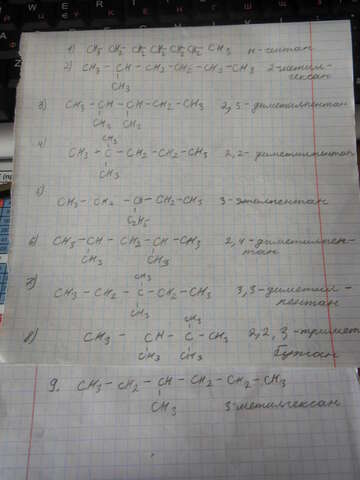 1) CH3 CH2 CH2 CH2 CH2 CH2 CH3 н-гептан
2) CH3 - CH - CH2 - CH2 - CH2 - CH3 2-метил-
CH3 гексан
3) CH3 - CH - CH - CH2 - CH3 2,3-диметилпентан
CH3 CH3
CH3
4) CH3 - C - CH2 - CH2 - CH3 2,2-диметилпентан
CH3
5) CH3 - CH2 - CH - CH2 - CH3 3-этилпентан
C2H5
6) CH3 - CH - CH2 - CH - CH3 2,4-диметилпен-
CH3 CH3 тан
CH3
7) CH3 - CH2 - C - CH2 - CH3 3,3-диметил-
CH3 пентан
CH3
8) CH3 - CH - C - CH3 2,2,3-тримет
CH3 CH3 бутан
9. CH3 - CH2 - CH - CH2 - CH2 - CH3
CH3 3-метилгексан